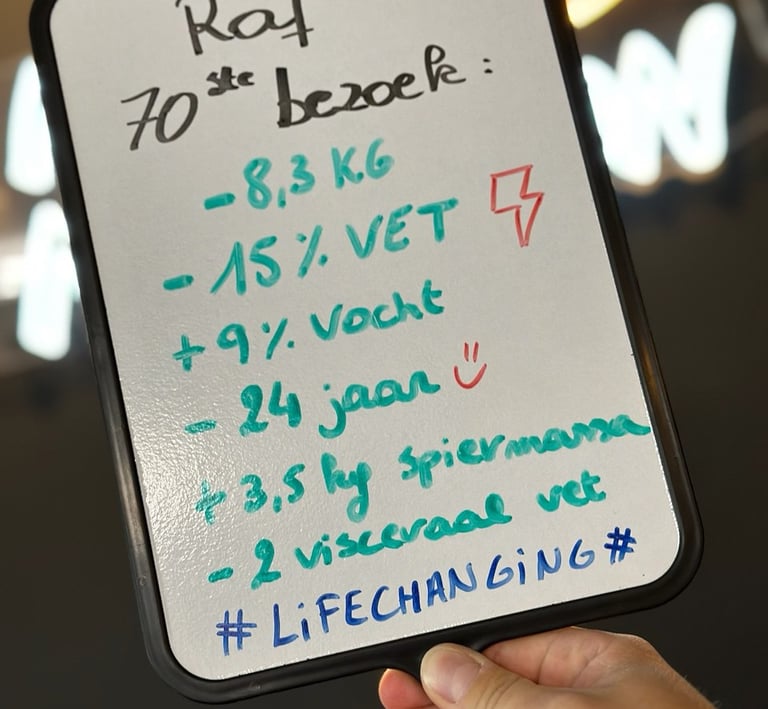 Raf
70ste bezoek:
- 8,3 KG
- 15% VET
+ 9% Vocht
- 24 jaar
+ 3,5 kg spiermassa
- 2 visceraal vet
#LiFECHANGiNG#